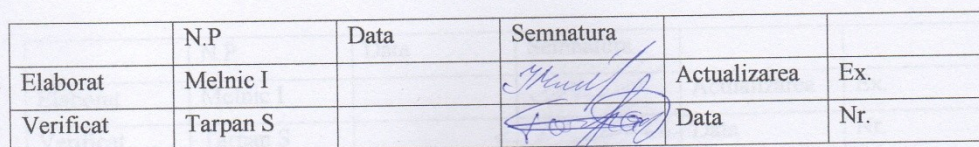 N.P Data Semnatura
Elaborat Melnic I Actualizarea Ex.
Verificat Tarpan S Data Nr.